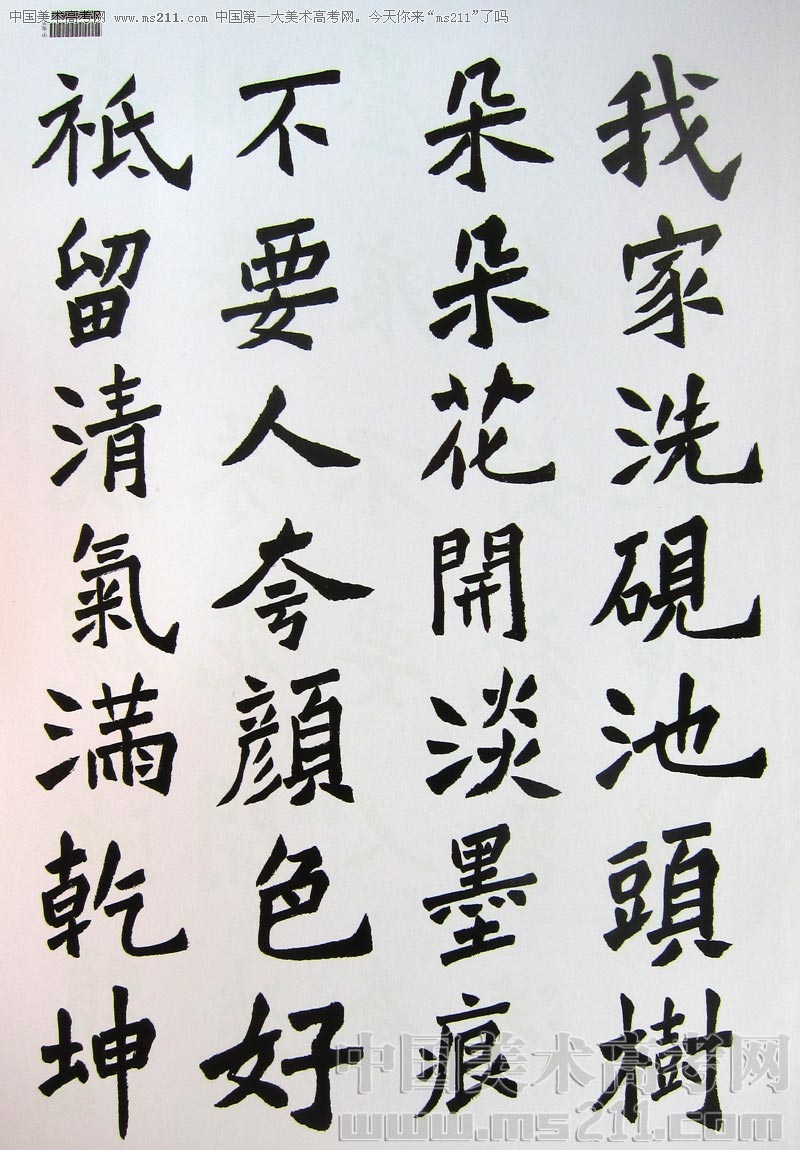 中国美术高考网 www.ms211.com 中国第一大美术高考网。今天你来“ms211”了吗
我家洗硯池頭樹
朵朵花開淡墨痕
不要人夸顔色好
祗留清氣滿乾坤
中国美术高考网
www.ms211.com